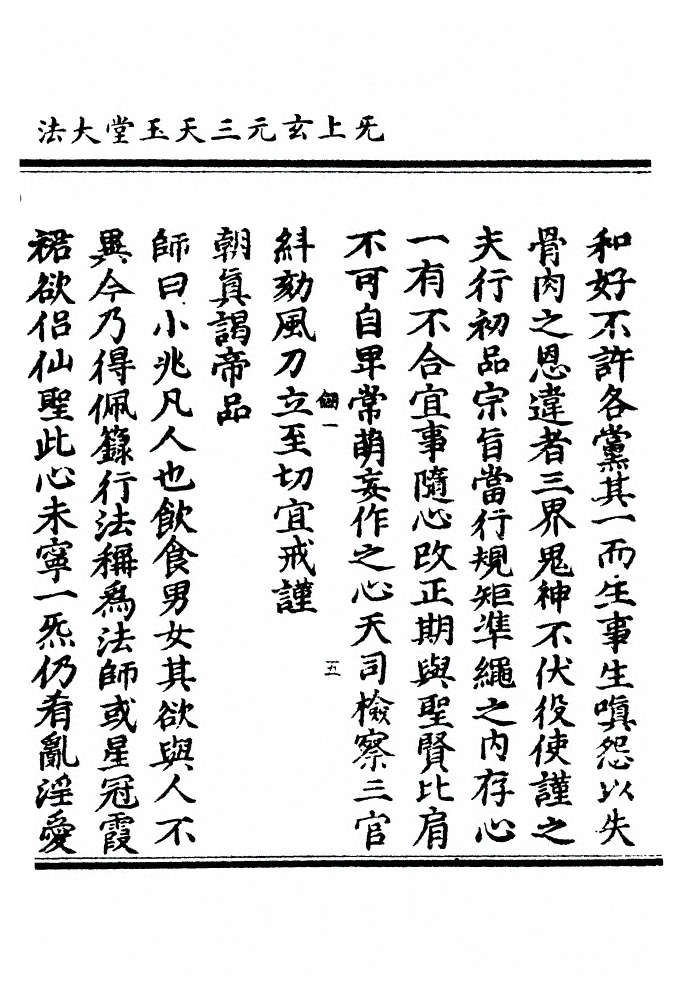 旡上玄元三天玉堂大法
和好不許各黨其一而生事生嗔怨以失
骨肉之恩違者三界鬼神不伏役使謹之
夫行初品宗旨當行規矩準繩之内存心
一有不合宜事隨心改正期與聖賢比肩
不可自卑常萌妄作之心天司檢察三官
一 五
糾劾風刀立至切宜戒謹
朝真謁帝品
師曰小兆凡人也飲食男女其欲與人不
異今乃得佩籙行法稱爲法師或星冠霞
裙欲侣仙聖此心未寧一炁仍肴亂淫愛